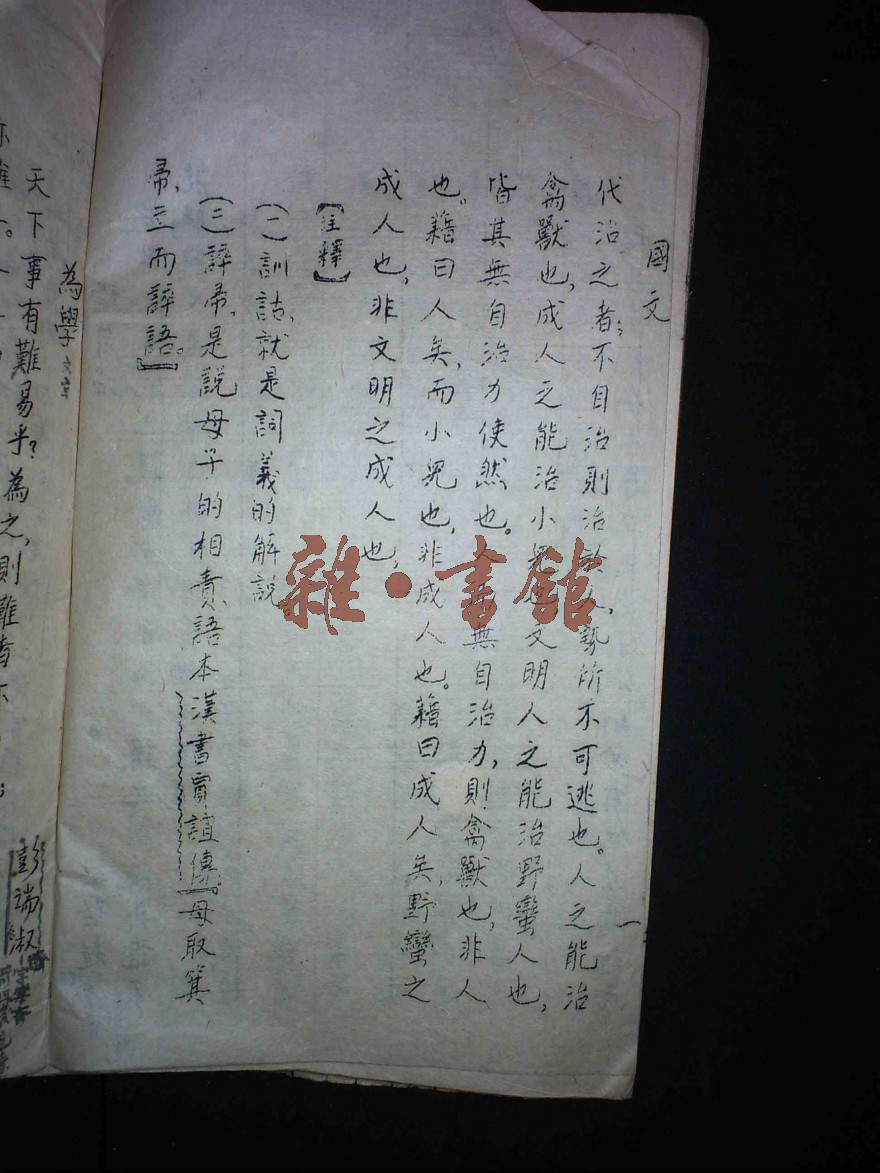 國文
一
代治之者；不自治則治於人，勢所不可逃也。人之能治
禽獸也，成人之能治小兒也，文明人之能治野蠻人也，
皆其無自治力使然也。人而無自治力，則禽獸也，非人
也。藉曰人矣，而小兒也，非成人也。藉曰成人矣，野蠻之
成人也，非文明之成人也，
【註釋】
(一)訓詁、就是詞義的解說
(二)誶帚、是說母子的相責、語本漢書賈誼傳。母取箕
帚、立而誶語。】
為學
天下事有難易乎？為之，則難者
彭端淑
雜·書館